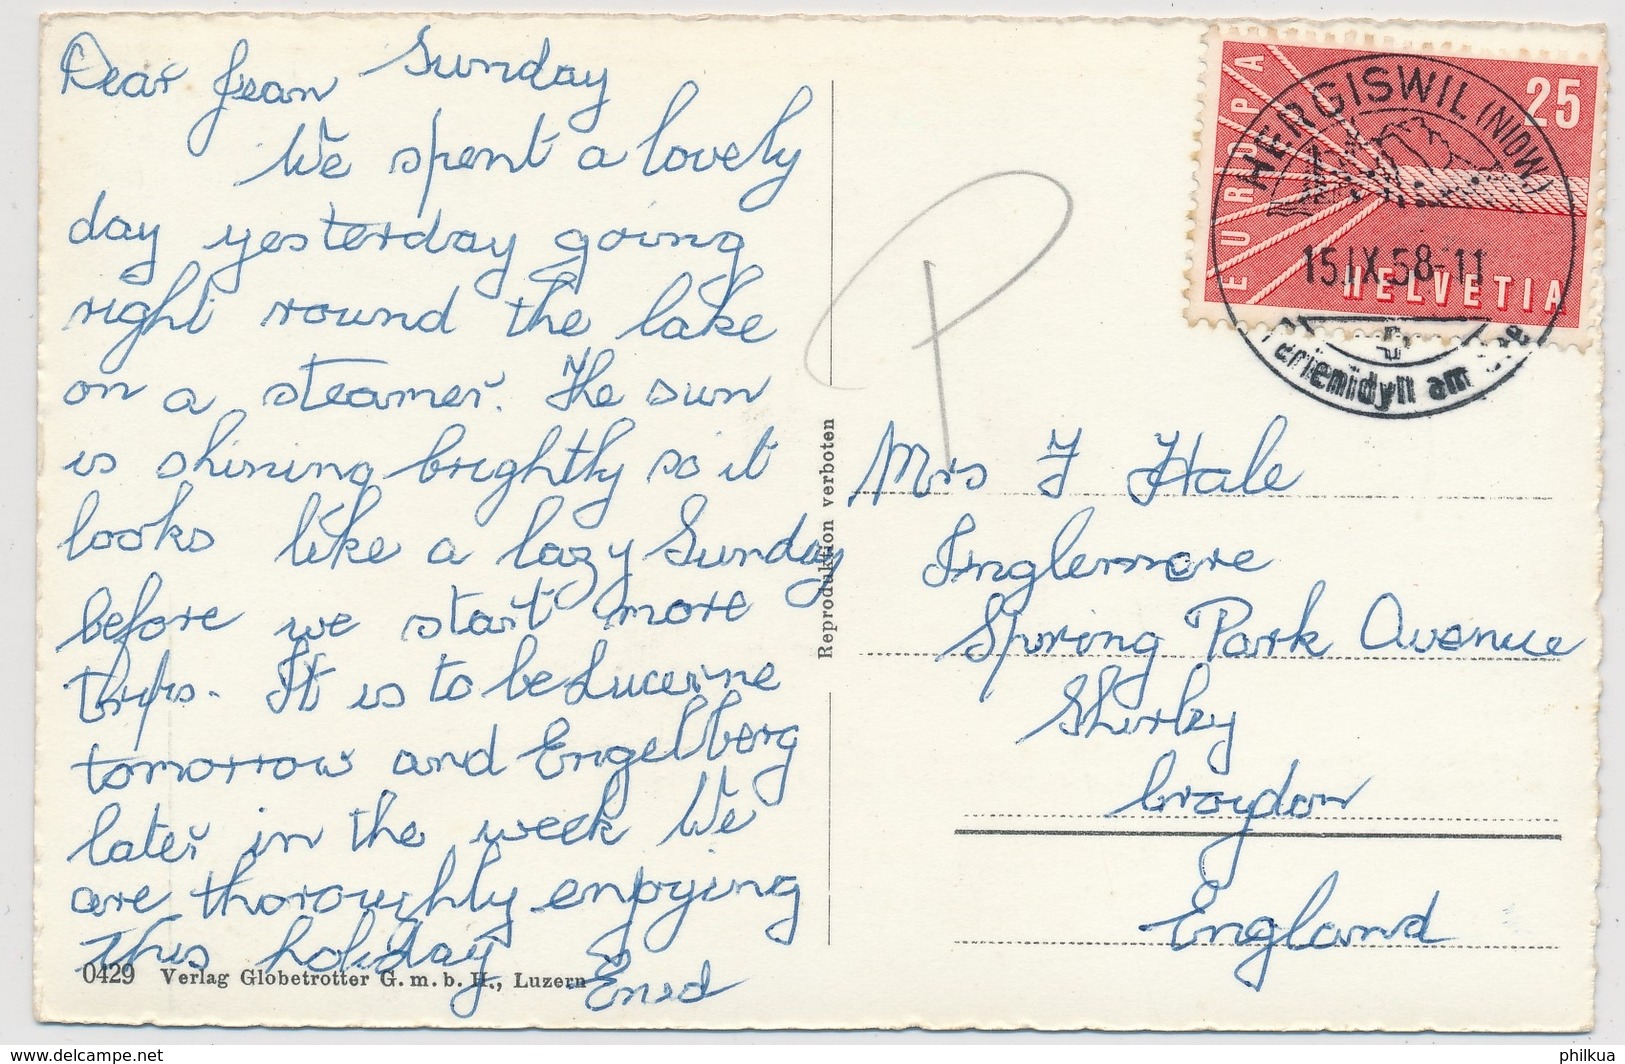 Dear Jean Sunday
We spent a lovely
day yesterday going
right round the lake
on a steamer. The sun
is shining brightly so it
looks like a lazy Sunday
before we start more
trips. It is to be Lucerne
tomorrow and Engelberg
later in the week We
are thoroughly enjoying
this holiday
Enid
0429 Verlag Globetrotter G. m. b. H., Luzern
Reproduktion verboten
P
EUROPA
25
HELVETIA
HERGISWIL (NIDW)
15.IX.58-11
Ferienidyll am
Mrs J Hale
Inglemore
Spring Park Avenue
Shirley
Croydon
England
philkua
delcampe.net